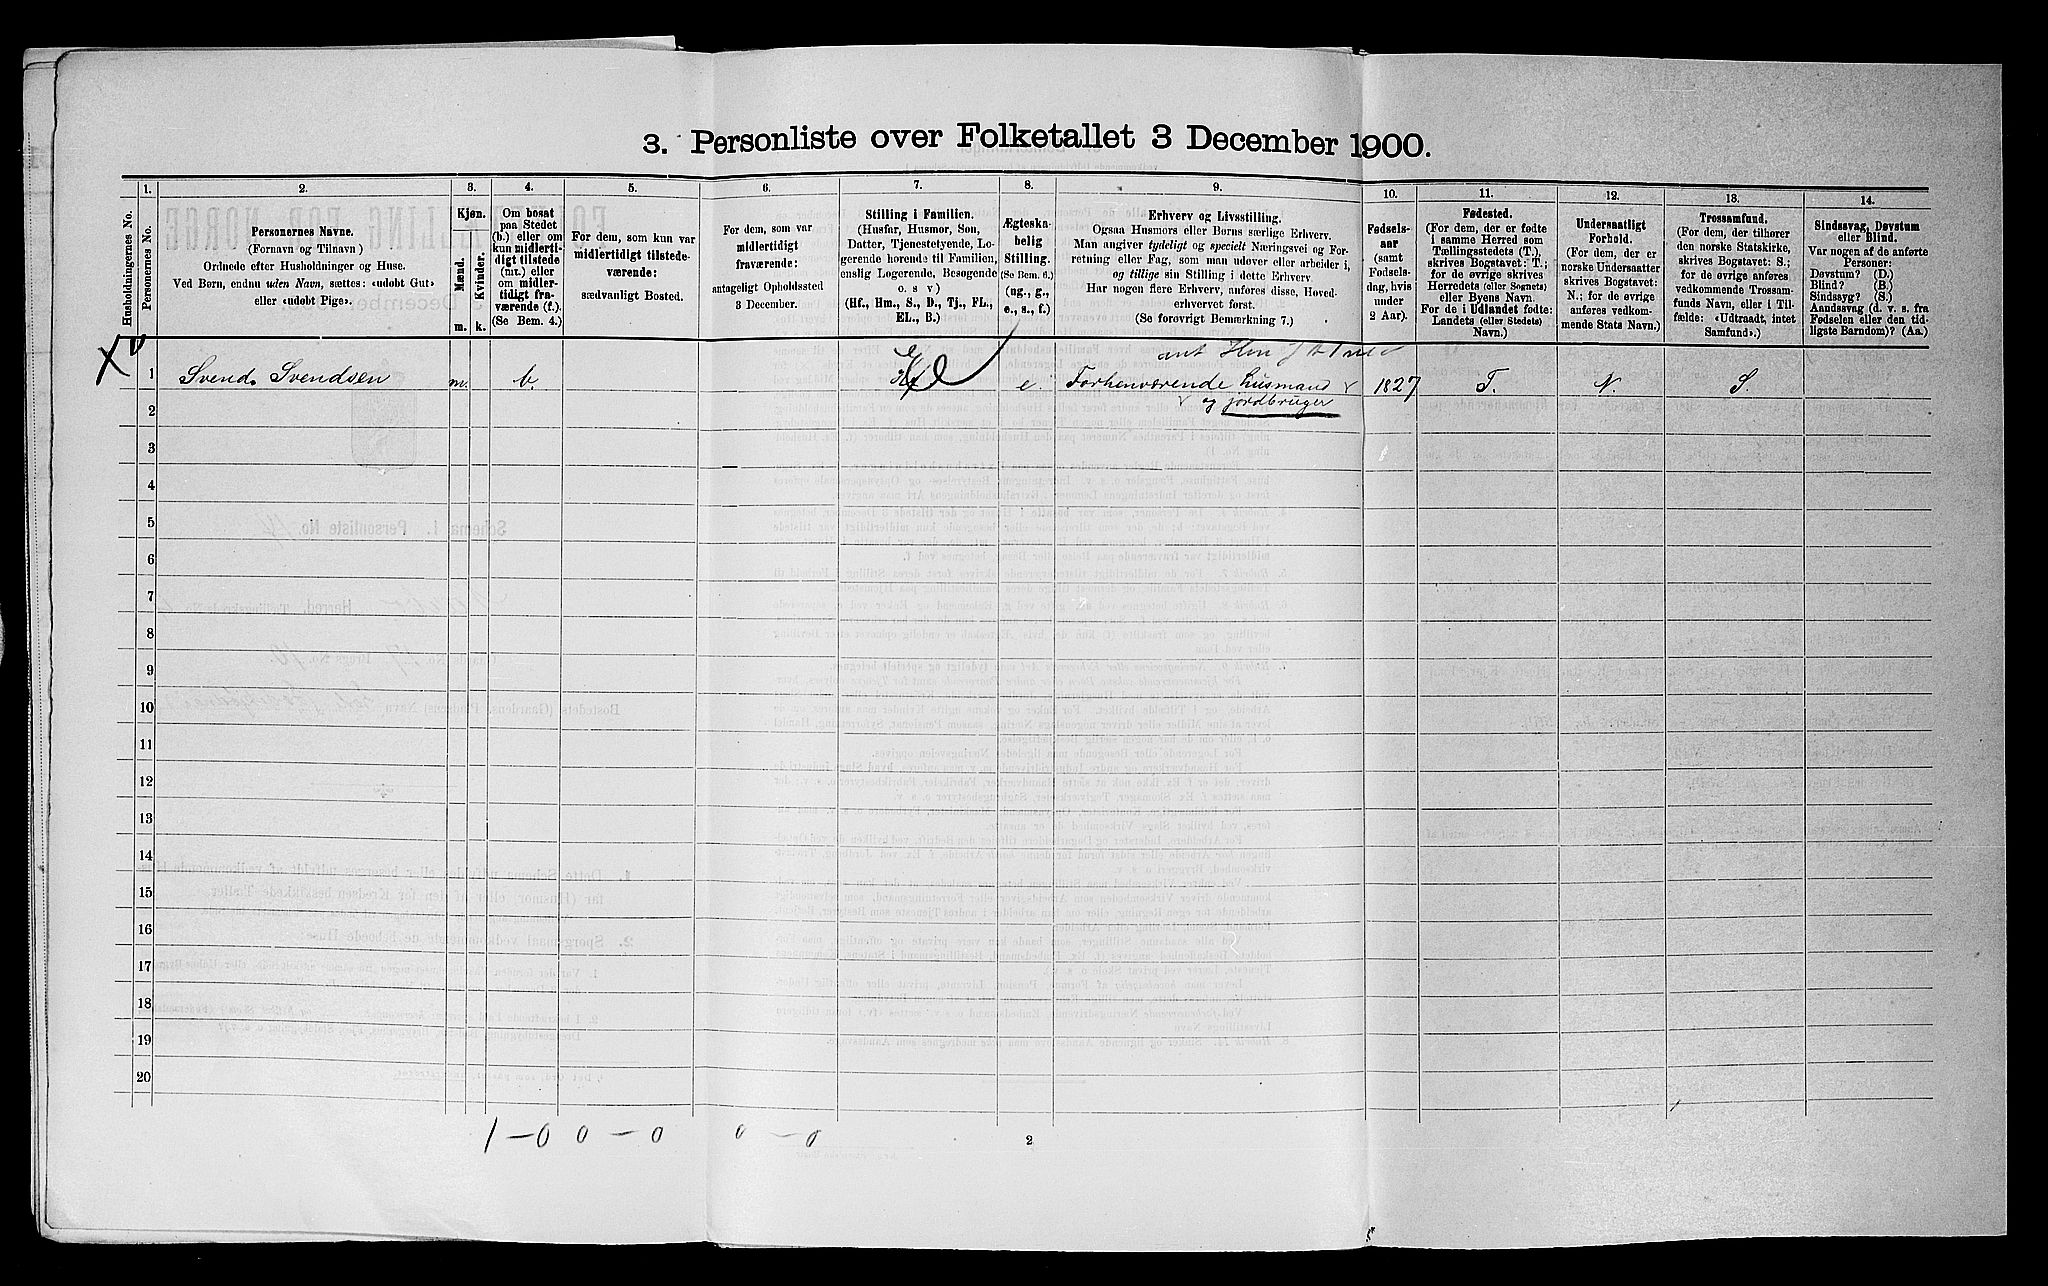 3. Personliste over Folketallet 3 December 1900.
Husholdningernes No.
1.
Personernes No.
2.
Personernes Navne.
(Fornavn og Tilnavn)
Ordnede efter Husholdninger og Huse.
Ved Børn, endnu uden Navn, sættes: «udøbt Gut»
eller «udøbt Pige».
3.
Kjøn.
Mænd.
Kvinder.
m. k.
4.
Om bosat
paa Stedet
(b.) eller om
kun midlerti-
digt tilstede
(mt.) eller
om midler-
tidigt fra-
værende (f.).
(Se Bem. 4.)
5.
For dem, som kun var
midlertidigt tilstede-
værende:
sædvanligt Bosted.
6.
For dem, som var
midlertidigt
fraværende:
antageligt Opholdssted
3 December.
7.
Stilling i Familien.
(Husfar, Husmor, Søn,
Datter, Tjenestetyende, Lo-
gerende hørende til Familien,
enslig Logerende, Besøgende
o. s v)
(Hf., Hm., S., D., Tj., FL.,
EL., B.)
8.
Ægteska-
belig
Stilling.
(Se Bem. 6.)
(ug., g.,
e., s., f.)
9.
Erhverv og Livsstilling.
Ogsaa Husmors eller Børns særlige Erhverv.
Man angiver tydeligt og specielt Næringsvei og For-
retning eller Fag, som man udøver eller arbeider i,
og tillige sin Stilling i dette Erhverv
Har nogen flere Erhverv, anføres disse, Hoved-
erhvervet først.
(Se forøvrigt Bemærkning 7.)
10.
Fødsels-
aar
(samt
Fødsels-
dag, hvis
under
2 Aar).
11.
Fødested.
(For dem, der er fødte
i samme Herred som
Tællingsstedets (T.),
skrives Bogstavet: T.;
for de øvrige skrives
Herredets (eller Sognets)
eller Byens Navn.
For de i Udlandet fødte:
Landets (eller Stedets)
Navn.)
12.
Undersaatligt
Forhold.
(For dem, der er
norske Undersaatter
skrives Bogstavet:
N.; for de øvrige
anføres vedkom-
mende Stats Navn.)
13.
Trossamfund.
(For dem, der tilhører
den norske Statskirke,
skrives Bogstavet: S.;
for de øvrige anføres
vedkommende Trossam-
funds Navn, eller i Til-
fælde: «Udtraadt, intet
Samfund».)
14.
Sindssvag, Døvstum
eller Blind.
Var nogen af de anførte
Personer:
Døvstum? (D.)
Blind? (B.)
Sindssyg? (S.)
Aandssvag (d. v. s. fra
Fødselen eller den tid-
ligste Barndom)? (Aa.)
1 Svend Svendsen m. b. e. Forhenværende husmand 1827 T. N. S.
og jordbruger
2
3
4
5
6
7
8
9
10
11
12
13
14
15
16
17
18
19
20
1 – 0 0 – 0 0 – 0
2